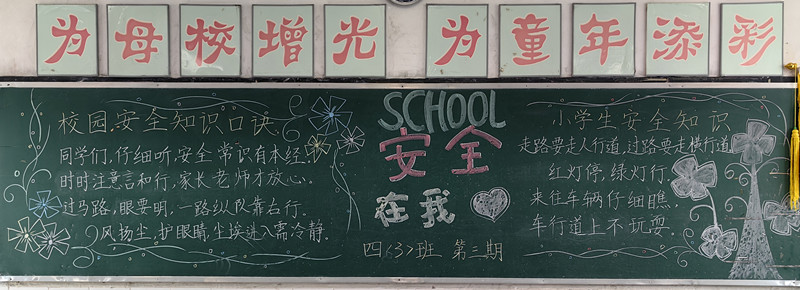 为母校增光 为童年添彩
校园安全知识口诀
同学们,仔细听,安全常识有本经.
时时注意言和行,家长老师才放心.
过马路,眼要明,一路纵队靠右行.
风扬尘,护眼睛,尘埃进入需冷静.
SCHOOL
安全
在我
四(3)班 第三期
小学生安全知识
走路要走人行道,过路要走横行道
红灯停,绿灯行,
来往车辆仔细瞧.
车行道上不玩耍.